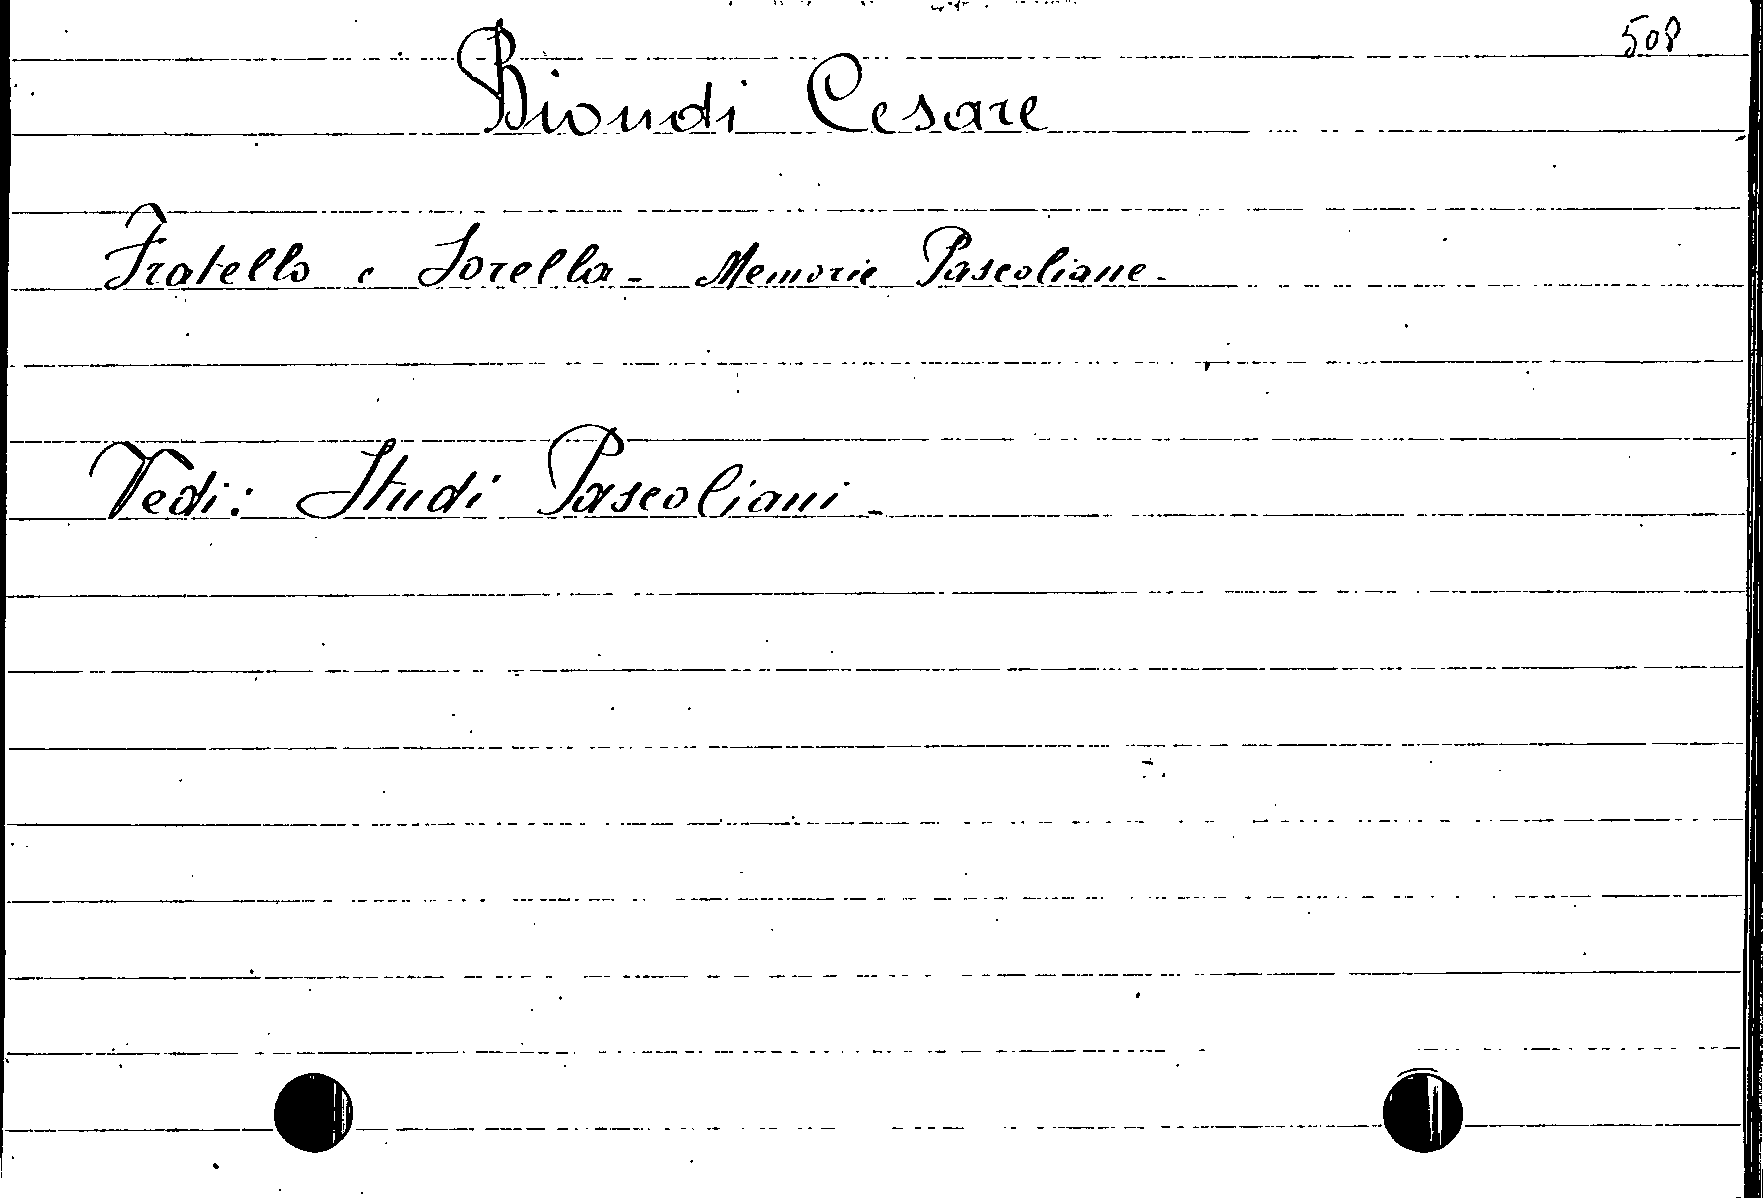 508
Biondi Cesare
Fratello e Sorella - Memorie Pascoliane -
Vedi: Studi Pascoliani -